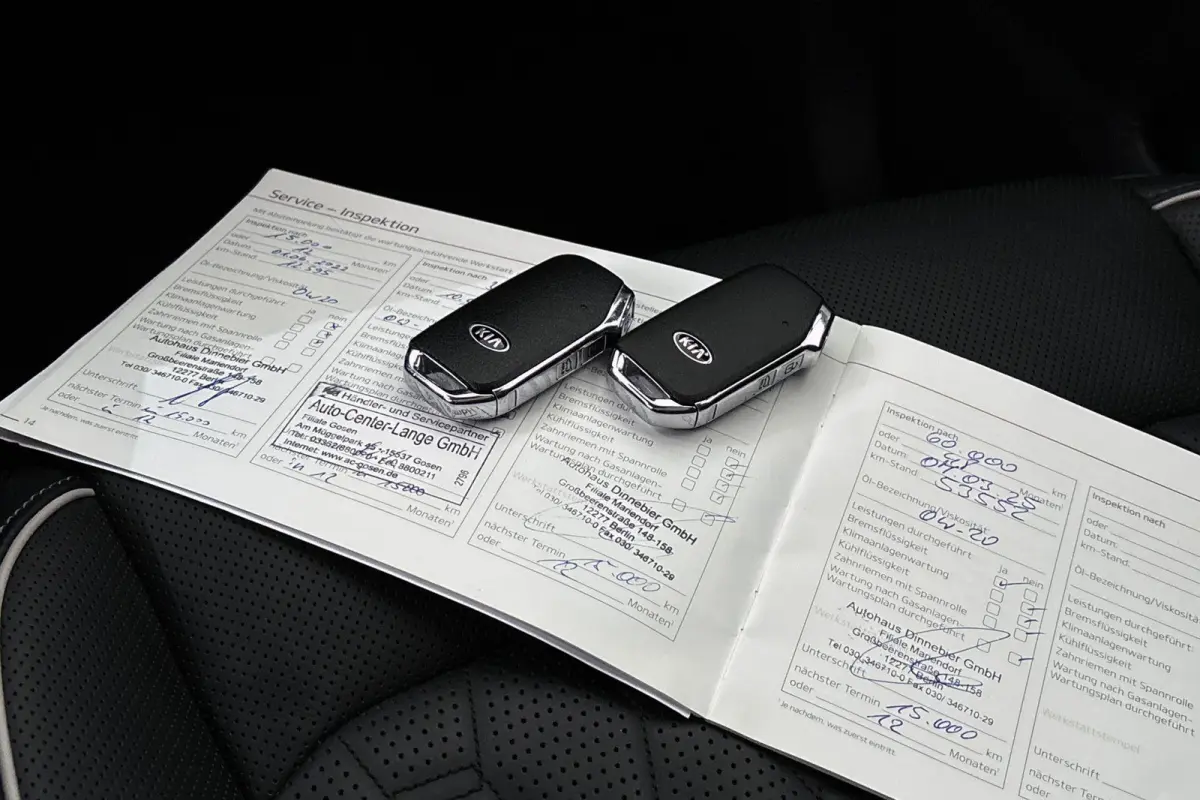 Service – Inspektion
Mit Abstempelung bestätigt die wartungsausführende Werkstatt
Inspektion nach
15.000 km
oder 12 Monaten
Datum
km-Stand
Öl-Bezeichnung/Viskosität
0W20
Leistungen durchgeführt: ja nein
Bremsflüssigkeit
Klimaanlagenwartung
Kühlflüssigkeit
Zahnriemen mit Spannrolle
Wartung nach Gasanlagen-
Wartungsplan durchgeführt
Autohaus Dinnebier GmbH
Filiale Mariendorf
Großbeerenstraße 148-158
12277 Berlin
Tel 030/ 346710-0 Fax 030/ 346710-29
Unterschrift
nächster Termin in 15000 km
oder 12 Monaten¹
¹Je nachdem, was zuerst eintritt.
14
Inspektion nach
oder
Datum
km-Stand
Öl-Bezeichnung
0W-
Leistungen
Bremsflüssigkeit
Klimaanlagen
Kühlflüssigkeit
Zahnriemen
Wartung nach
Wartungsplan
KIA Händler- und Servicepartner
Auto-Center-Lange GmbH
Filiale Gosen
Am Müggelpark
15537 Gosen
Internet: www.ac-gosen.de
2795
nächster Termin 15000
oder in 12 Monaten¹
KIA
KIA
Leistungen durchgeführt
Bremsflüssigkeit
Klimaanlagenwartung
Kühlflüssigkeit
Zahnriemen mit Spannrolle
Wartung nach Gasanlagen-
Wartungsplan durchgeführt
Autohaus Dinnebier GmbH
Filiale Mariendorf
Großbeerenstraße 148-158
12277 Berlin
Tel 030/ 346710-0 Fax 030/ 346710-29
Unterschrift
nächster Termin 15.000 km
oder 12 Monaten¹
Inspektion nach
60.000 km
oder Monaten
Datum 04.03.25
km-Stand 53552
Öl-Bezeichnung/Viskosität
0W-20
Leistungen durchgeführt ja nein
Bremsflüssigkeit
Klimaanlagenwartung
Kühlflüssigkeit
Zahnriemen mit Spannrolle
Wartung nach Gasanlagen-
Wartungsplan durchgeführt
Autohaus Dinnebier GmbH
Filiale Mariendorf
Großbeerenstraße 148-158
12277 Berlin
Tel 030/ 346710-0 Fax 030/ 346710-29
Unterschrift
nächster Termin 15.000 km
oder 12 Monaten¹
¹Je nachdem, was zuerst eintritt.
Inspektion nach
oder
Datum:
km-Stand:
Öl-Bezeichnung/Viskosität
Leistungen durchgeführt:
Bremsflüssigkeit
Klimaanlagenwartung
Kühlflüssigkeit
Zahnriemen mit Spannrolle
Wartung nach Gasanlagen-
Wartungsplan durchgeführt
Werkstattstempel
Unterschrift
nächster Termin
oder